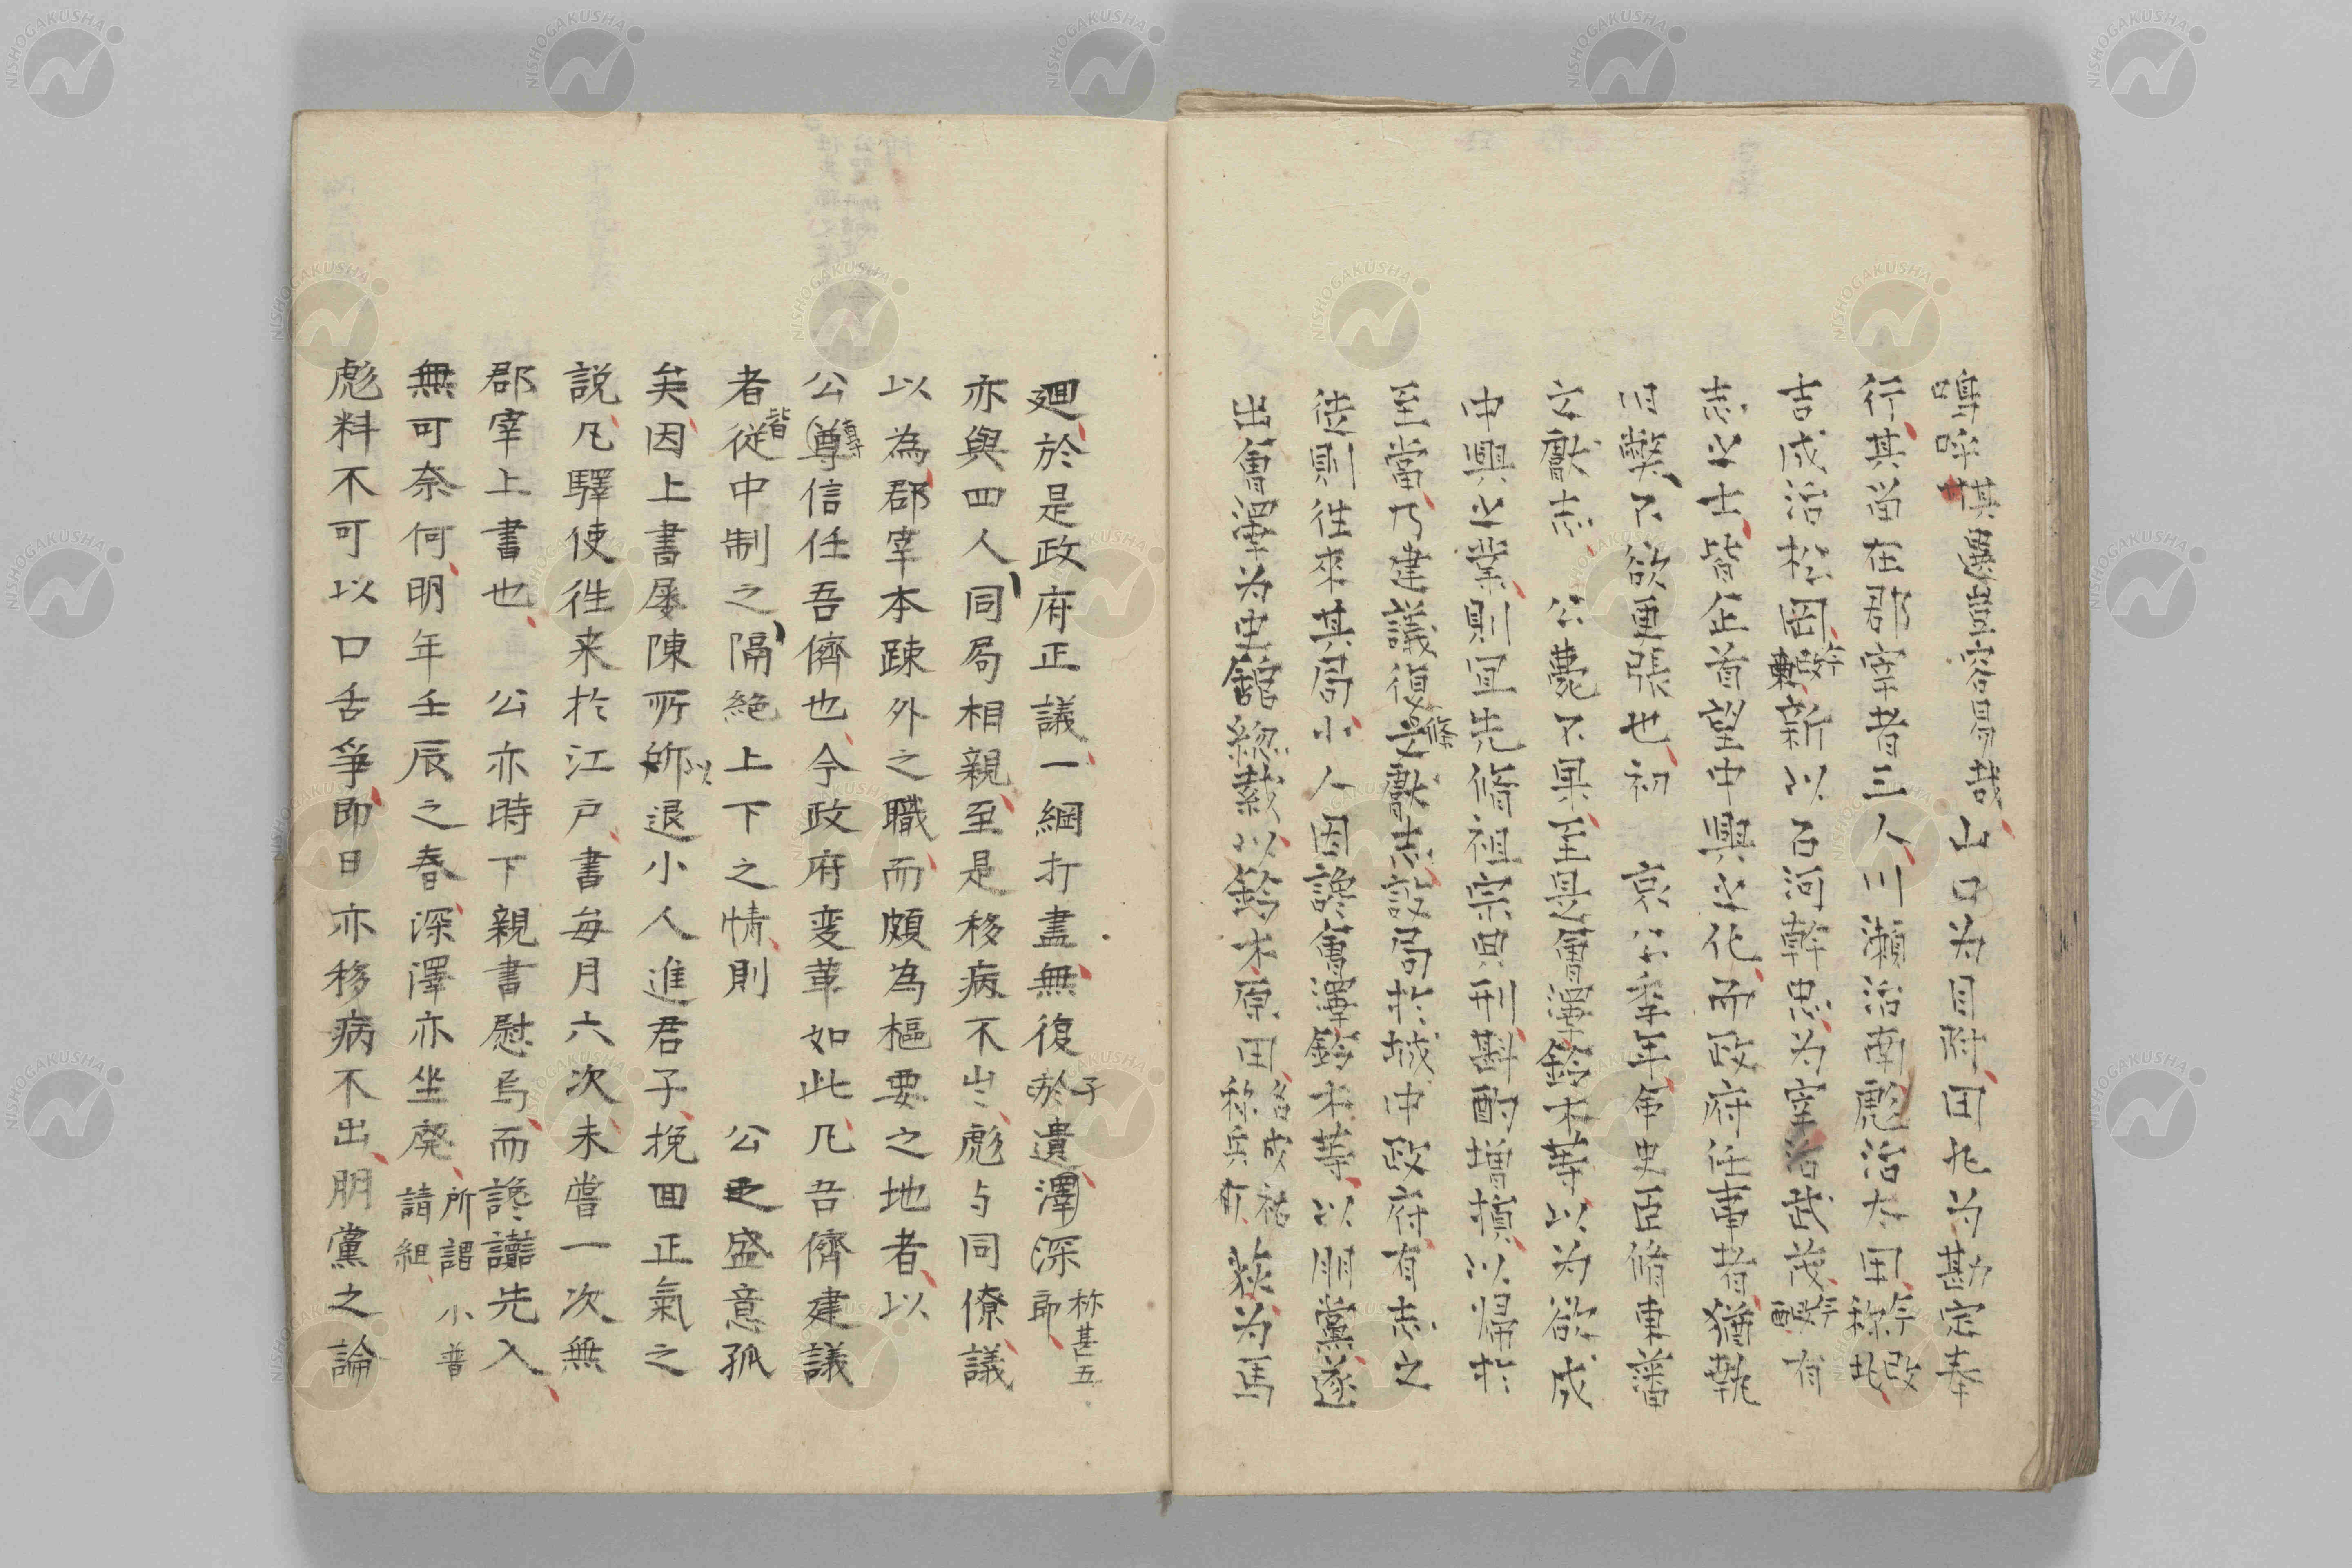 嗚呼棋邊豈容易哉山口为目附田丸为勘定奉
行其留在郡宰者三人川瀬治南彪治太田称野改北
吉成治松岡新以石河幹忠为宰治武茂有
志之士皆企首望中興之化而政府任事者猶執
旧弊不欲更張也初　哀公季年命史臣脩東藩
文獻志　公薨不果至是會澤鈴木等以为欲成
中興之業則宜先脩祖宗典刑斟酌増損以帰於
至當乃建議復脩文獻志設局於城中政府有志之
徒則往來其局小人因讒會澤鈴木等以朋黨遂
出會澤为史舘総裁以鈴木原田名成祐称兵介荻为馬
廻於是政府正議一網打盡無復子遺澤深称甚五郎
亦與四人同局相親至是移病不出彪与同僚議
以為郡宰本踈外之職而頗為樞要之地者以
公專信任吾儕也今政府変革如此凡吾儕建議
者皆從中制之隔絶上下之情則　公之盛意孤
矣因上書屡陳所以退小人進君子挽回正氣之
説凡驛使往来於江戸書毎月六次未嘗一次無
郡宰上書也　公亦時下親書慰焉而讒譖先入
無可奈何明年壬辰之春深澤亦坐廃所謂小普請組
彪料不可以口舌爭即日亦移病不出朋黨之論